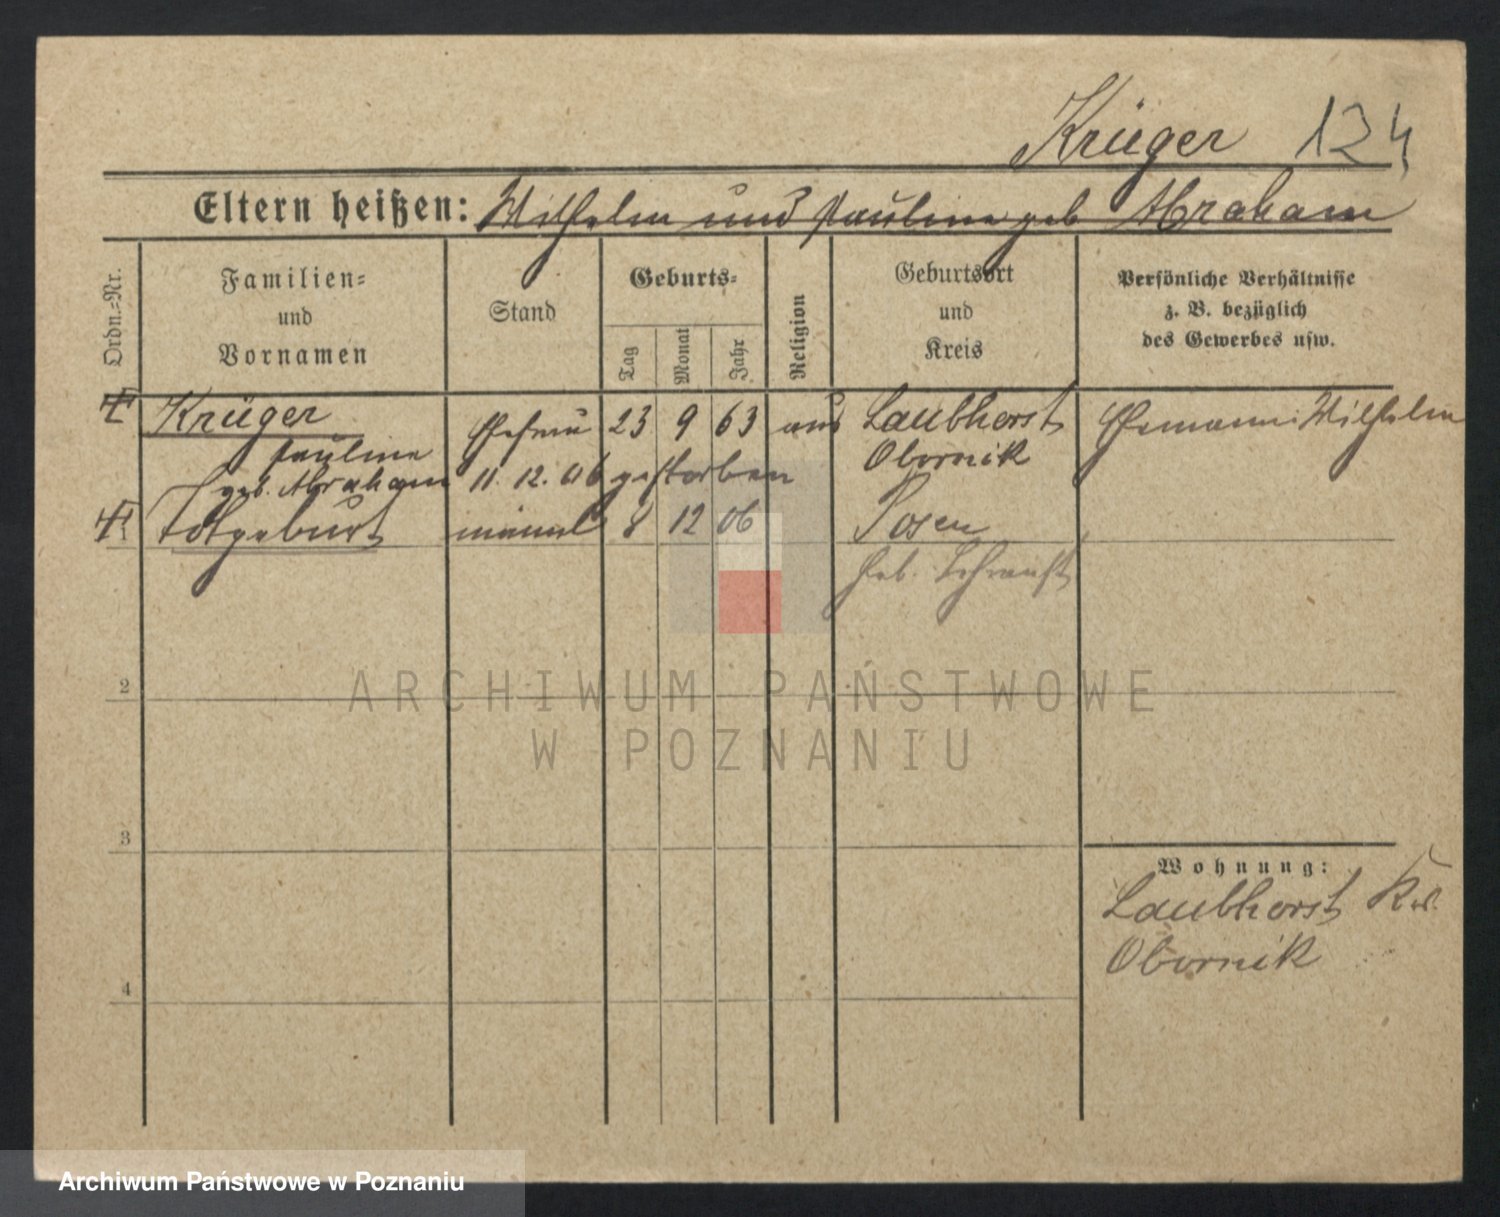 Krüger 134
Eltern heißen: Wilhelm und Pauline geb Abraham
Ordn.=Nr.
Familien=
und
Vornamen
Stand
Geburts=
Tag
Monat
Jahr
Religion
Geburtsort
und
Kreis
Persönliche Verhältnisse
z. B. bezüglich
des Gewerbes usw.
Krüger Ehefrau 23 9 63 Laubhorst Ehemann: Wilhelm
Pauline Obornik
geb. Abraham 11. 12. 06 gestorben
1 Totgeburt männl 8 12 06 Posen
2
3
4
Wohnung:
Laubhorst Kr.
Obornik
ARCHIWUM PAŃSTWOWE
W POZNANIU
Archiwum Państwowe w Poznaniu